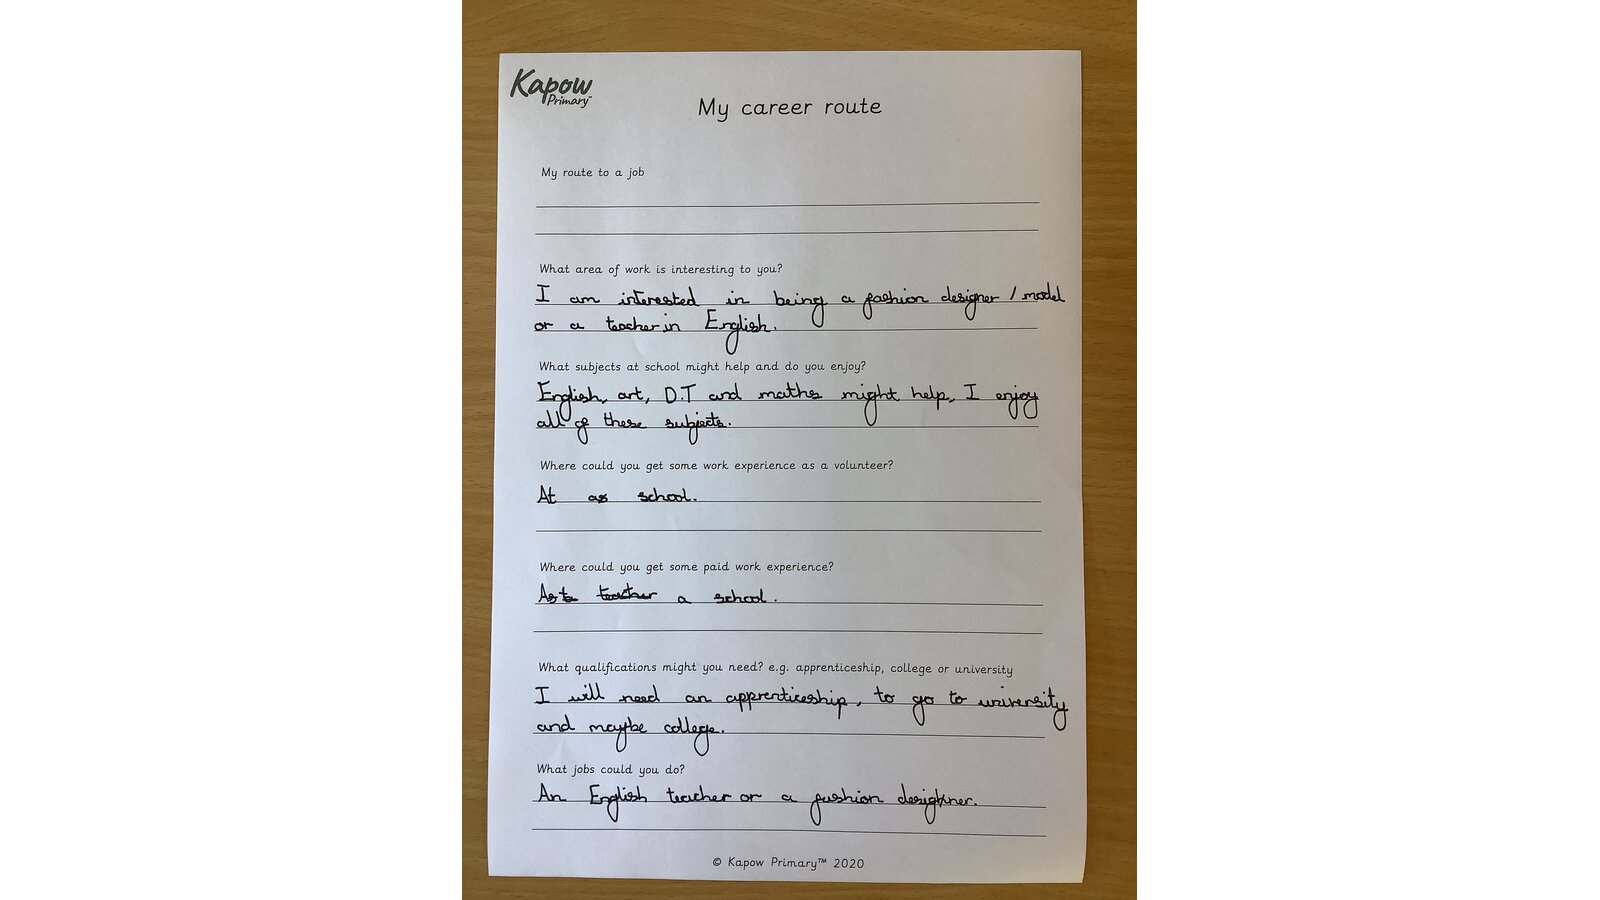 Kapow
Primary™
My career route
My route to a job
What area of work is interesting to you?
I am interested in being a fashion designer / model
or a teacher in English.
What subjects at school might help and do you enjoy?
English, art, D.T and maths might help, I enjoy
all of these subjects.
Where could you get some work experience as a volunteer?
At a school.
Where could you get some paid work experience?
At a school.
What qualifications might you need? e.g. apprenticeship, college or university
I will need an apprenticeship, to go to university
and maybe college.
What jobs could you do?
An English teacher or a fashion designer.
© Kapow Primary™ 2020